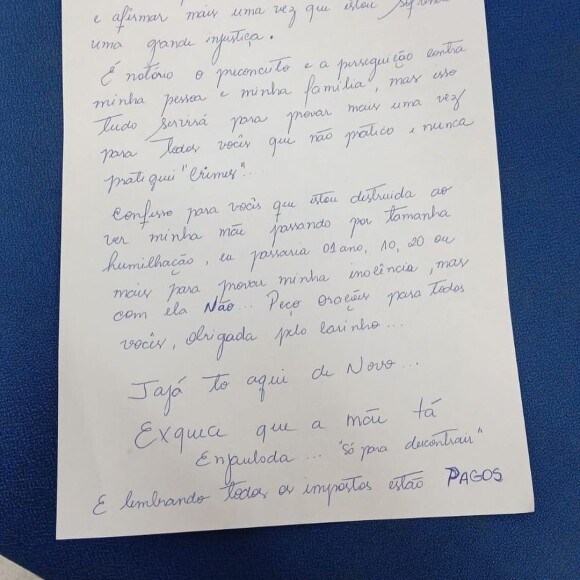 e afirmar mais uma vez que estou sofrendo
uma grande injustiça.
É notório o preconceito e a perseguição contra
minha pessoa e minha família, mas isso
tudo servirá para provar mais uma vez
para todos vocês que não pratico e nunca
pratiquei "Crimes"...
Confesso para vocês que estou destruida ao
ver minha mãe passando por tamanha
humilhação, eu passaria 01 ano, 10, 20 ou
mais para provar minha inocência, mas
com ela Não... Peço orações para todos
vocês, obrigada pelo carinho...
Jajá to aqui de Novo...
Exquece que a mãe tá
Enjaulada... "Só para descontrair"
E lembrando todos os impostos estão PAGOS